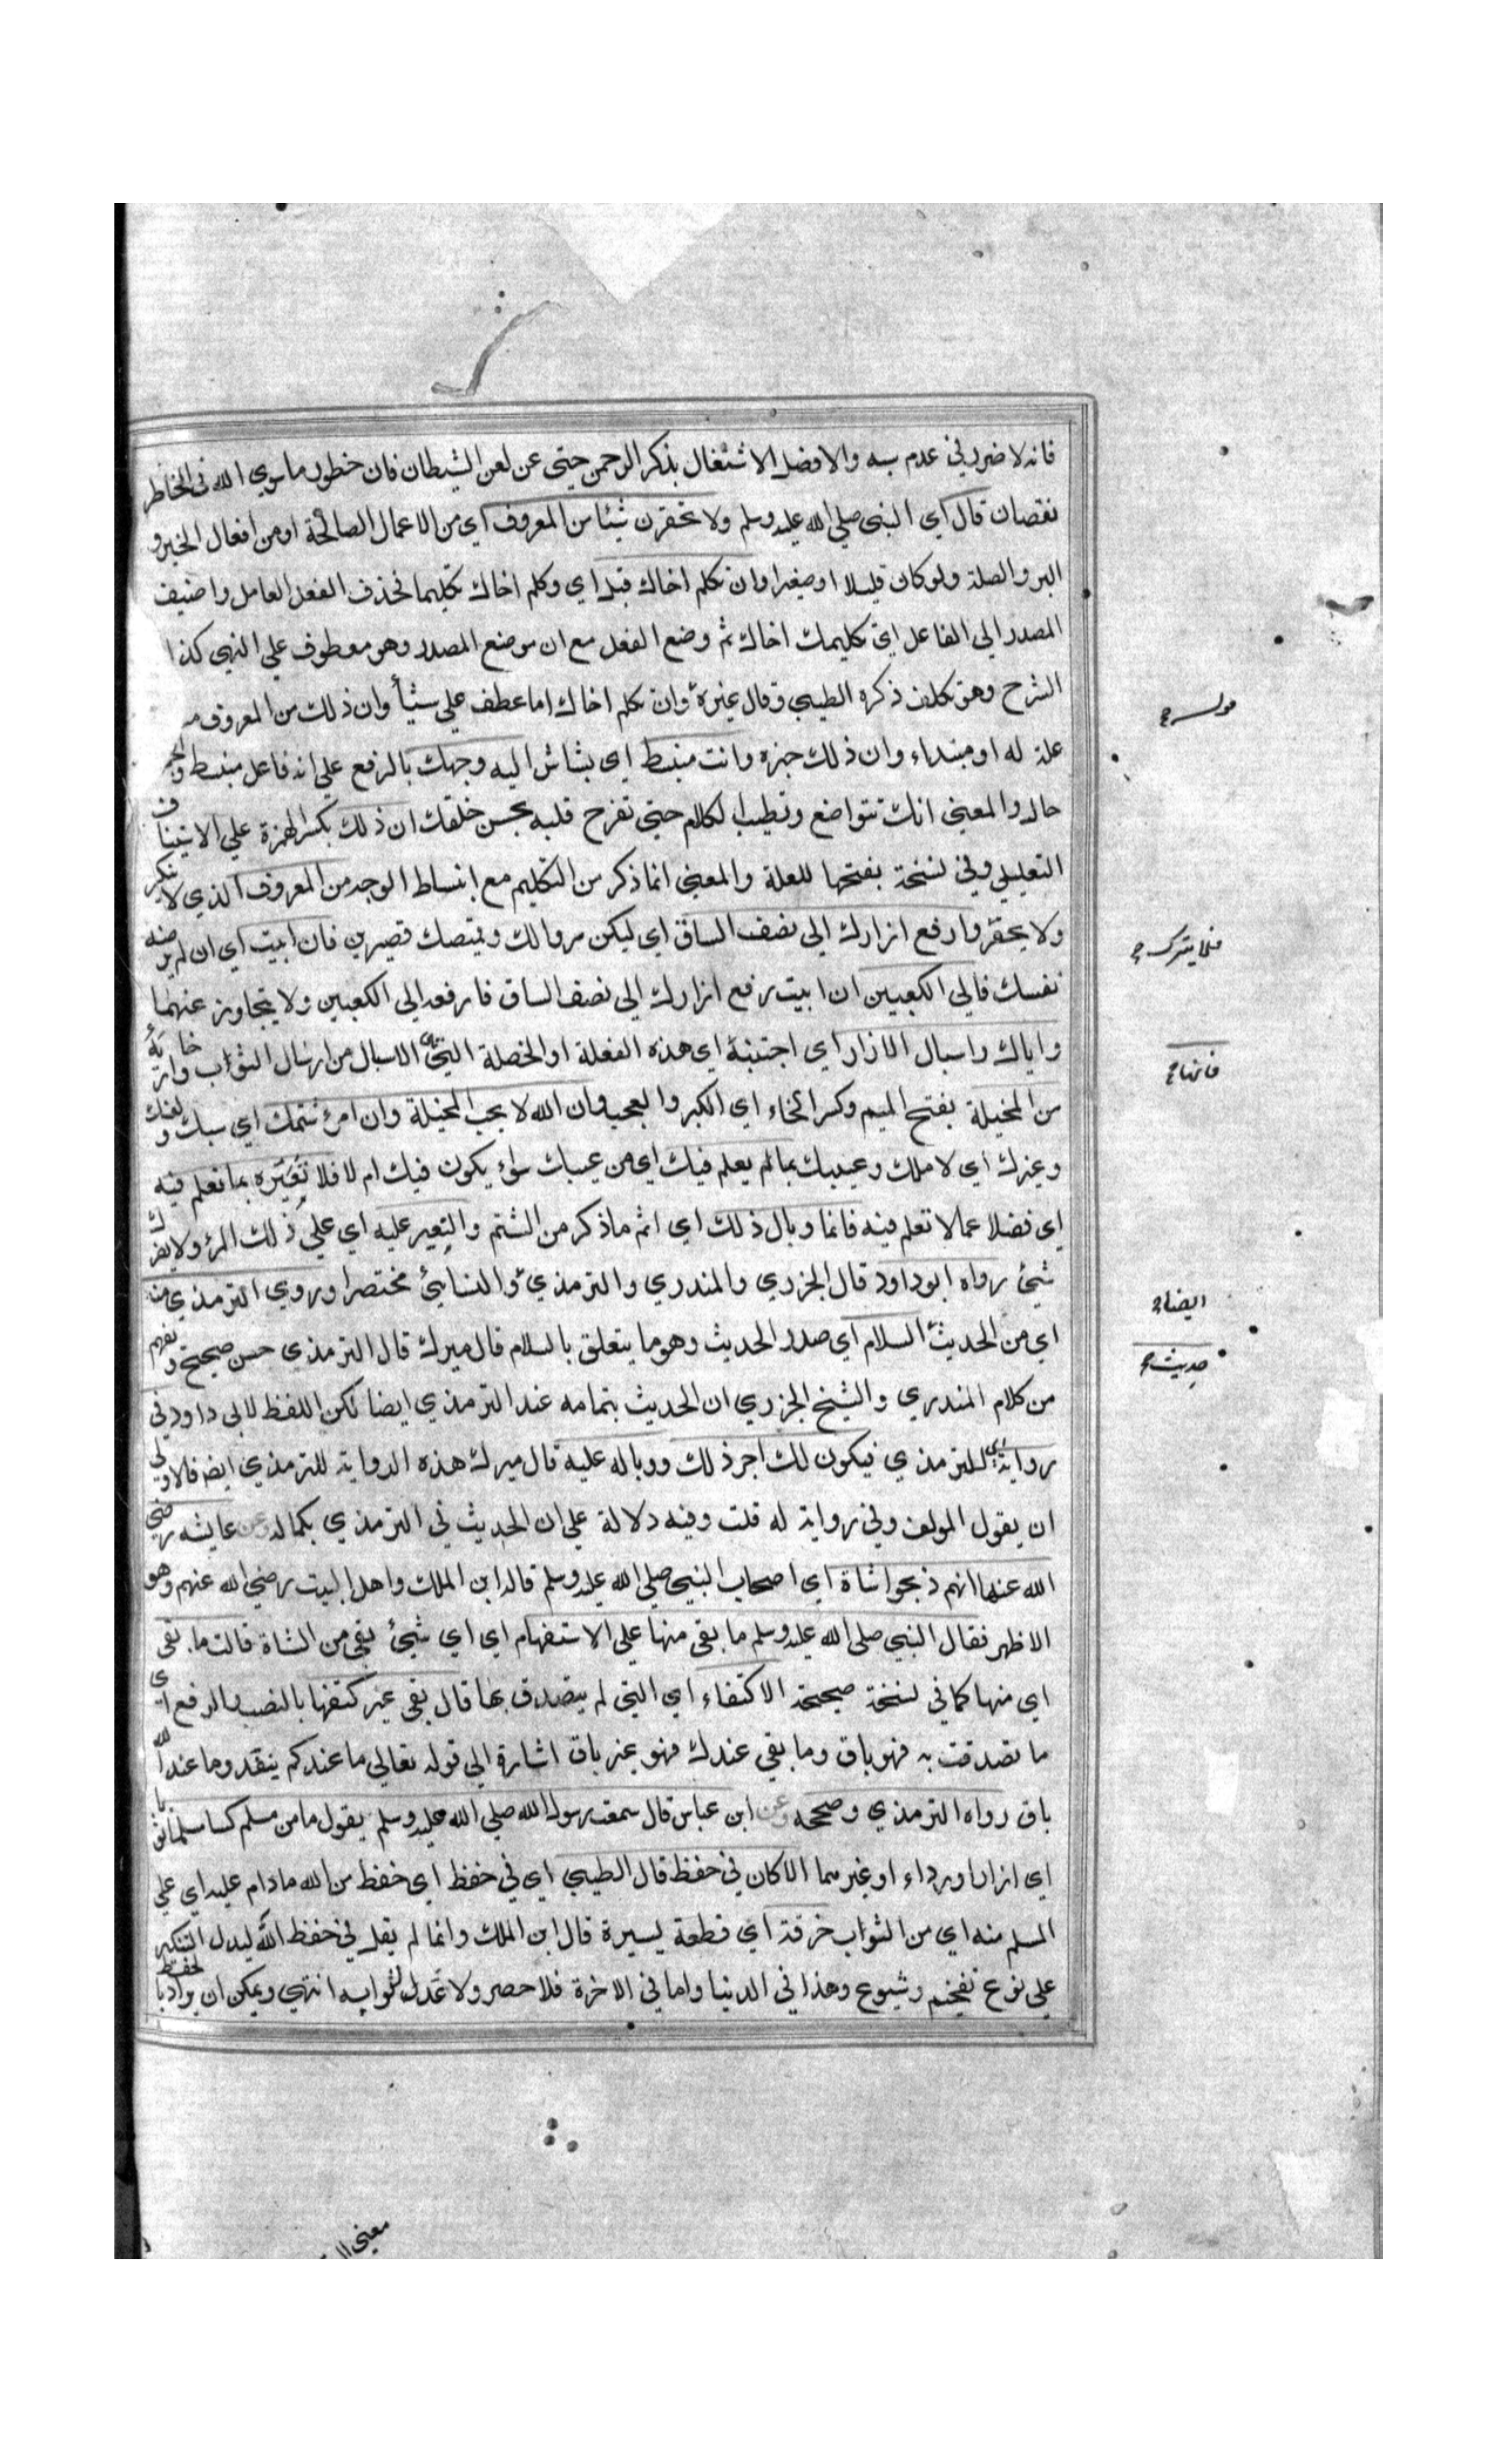 فانه لا ضرر في عدم سبه والافضل الاشتغال بذكر الرحمن حتى عن لعن الشيطان فان خطور ما سوي الله في الخاطر
نقصان قال اي النبي صلي الله عليه وسلم ولا تحقرن شيئا من المعروف اي من الاعمال الصالحة او من افعال الخير و
البر والصلة ولو كان قليلا او صغيرا وان تكلم اخاك قيل اي وكلم اخاك تكليما فحذف الفعل العامل واضيف
المصدر الي الفاعل اي تكليمك اخاك ثم وضع الفعل مع ان موضع المصدر وهو معطوف علي النهي كذا
الشرح وهو تكلف ذكره الطيبي وقال غيره وان تكلم اخاك اما عطف علي شيأ وان ذلك من المعروف
علة له او مبتداء وان ذلك خبره وانت منبسط اي بشاش اليه وجهك بالرفع علي انه فاعل منبسط
حال والمعني انك تتواضع وتطيب الكلام حتي تفرح قلبه بحسن خلقك ان ذلك بكسر الهمزة علي الاستيناف
التعليلي وفي نسخة بفتحها للعلة والمعني انما ذكر من التكليم مع انبساط الوجه من المعروف الذي لا ينكر
ولا يحقر وارفع ازارك الي نصف الساق اي ليكن سروالك وقميصك قصيرين فان ابيت اي ان لم ترضه
نفسك فالي الكعبين ان ابيت رفع ازارك الي نصف الساق فارفعه الي الكعبين ولا يتجاوز عنهما
واياك واسبال الازار اي اجتنبه اي هذه الفعلة او الخصلة التي هي الاسبال من ارسال الثواب وارخايه
من المخيلة بفتح الميم وكسر الخاء اي الكبر والعجب وان الله لا يحب المخيلة وان امرؤ شتمك اي سبك ولعنك
وعيرك اي لاملك وعيبك بما لم يعلم فيك اي من عيبك سواء يكون فيك ام لا فلا تعيره بما تعلم فيه
اي فضلا عما لا تعلم فيه فانما وبال ذلك اي اثم ما ذكر من الشتم والتعير عليه اي علي ذلك المرؤ ولا يضرك
شيئ رواه ابو داود قال الجزري والمندري والترمذي والنسايئ مختصرا وروي الترمذي منه
اي من الحديث السلام اي صدر الحديث وهو ما يتعلق بالسلام قال ميرك قال الترمذي حسن صحيح ويفهم
من كلام المندري والشيخ الجزري ان الحديث بتمامه عند الترمذي ايضا لكن اللفظ لابي داود في
رواية اي للترمذي فيكون لك اجر ذلك ووباله عليه قال ميرك هذه الرواية للترمذي ايضا فالاولي
ان يقول المولف وفي رواية له قلت وفيه دلالة علي ان الحديث في الترمذي بكماله وعن عايشه رضي
الله عنها انهم ذبحوا شاة اي اصحاب النبي صلي الله عليه وسلم قاله ابن الملك واهل البيت رضي الله عنهم وهو
الاظهر فقال النبي صلي الله عليه وسلم ما بقي منها علي الاستفهام اي اي شيئ بقي من الشاة قالت ما بقي
اي منها كما في نسخة صحيحة الا كتفاء اي التي لم يتصدق بها قال بقي غير كتفها بالنصب والرفع اي
ما تصدقت به فهو باق وما بقي عندك فهو غير باق اشارة الي قوله تعالي ما عندكم ينفد وما عند الله
باق رواه الترمذي وصححه وعن ابن عباس قال سمعت رسول الله صلي الله عليه وسلم يقول ما من مسلم كسا مسلما ثوبا
اي ازارا او رداء او غيرهما الا كان في حفظ قال الطيبي اي في حفظ اي حفظ من الله ما دام عليه اي علي
المسلم منه اي من الثواب خرقة اي قطعة يسيرة قال ابن الملك وانما لم يقل في حفظ الله ليدل التنكير
علي نوع تفخيم وشيوع وهذا في الدنيا واما في الاخرة فلا حصر ولا عد لثوابه انتهي ويمكن ان يراد بالحفظ
فانها
ايضا
حديث